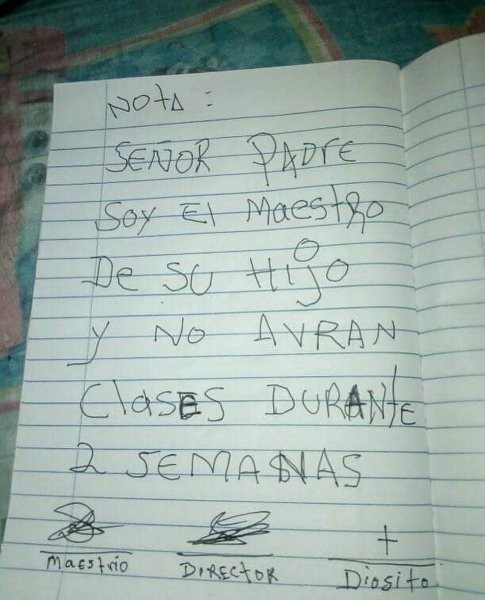 NOTA :
SEÑOR PADRE
Soy El MaestRo
De SU HIJO
y NO AVRAN
ClasES DURANtE
2 SEMANAS
+
Maestrio DIRECTOR Diosito